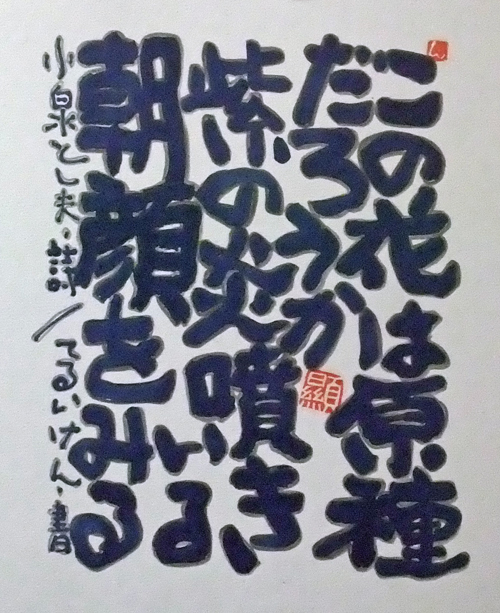 この花は原種
だろうか
紫の炎噴き
いる
朝顔をみる
小泉とし夫・詩/てるいけん・書